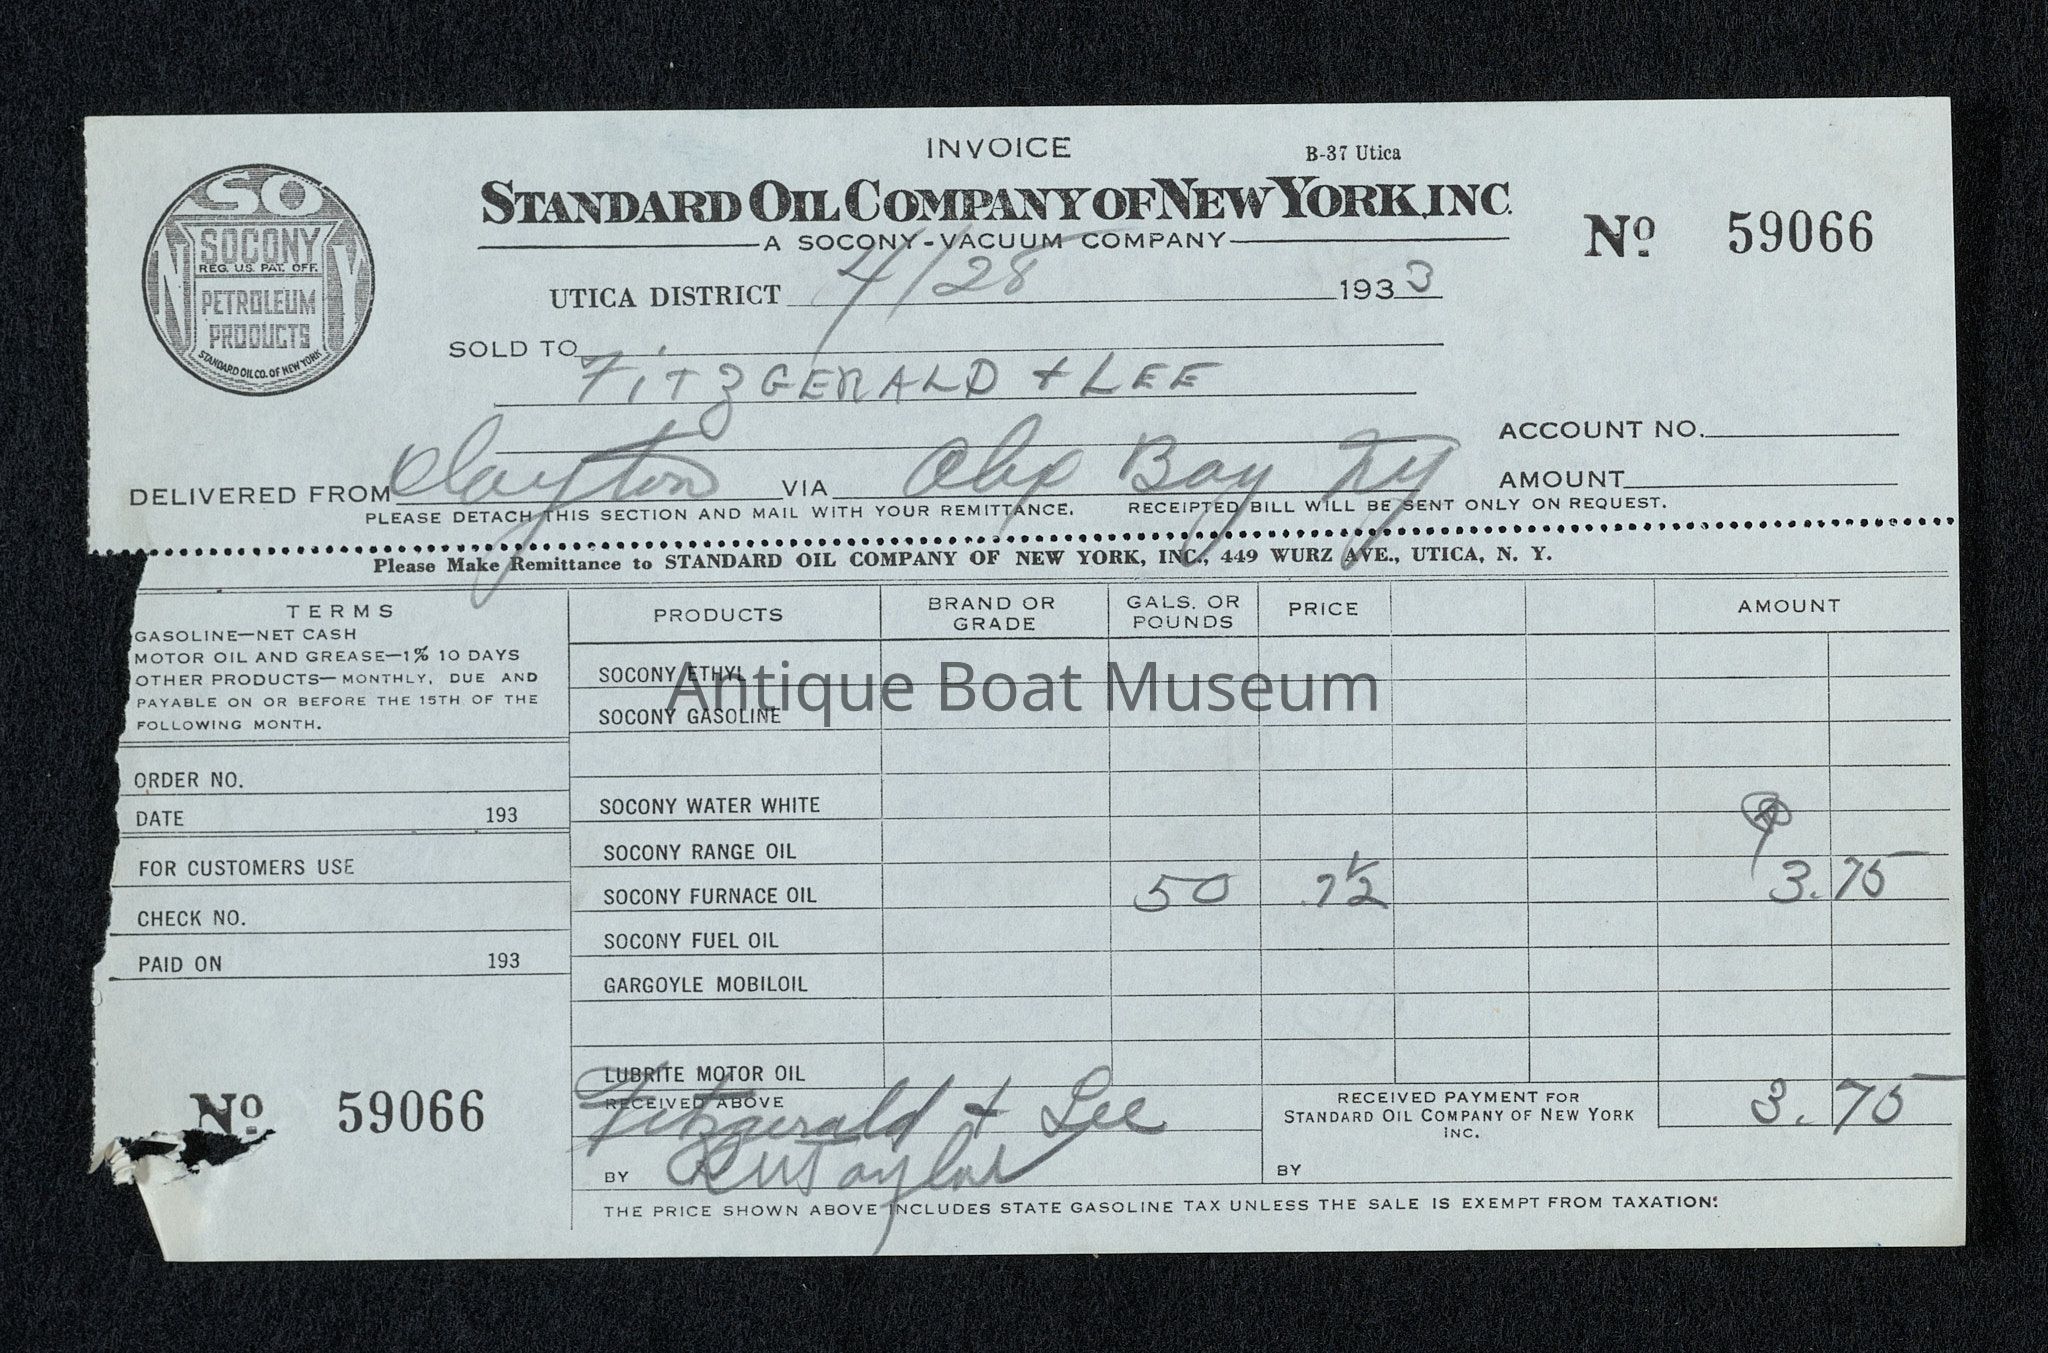 INVOICE
B-37 Utica
STANDARD OIL COMPANY OF NEW YORK, INC.
A SOCONY-VACUUM COMPANY
Nº 59066
SO
NY
SOCONY
REG. U.S. PAT. OFF.
PETROLEUM
PRODUCTS
STANDARD OIL CO. OF NEW YORK
UTICA DISTRICT 4/28 1933
SOLD TO
FITZGERALD + LEE
ACCOUNT NO.
DELIVERED FROM Clayton VIA Alex Bay NY AMOUNT
PLEASE DETACH THIS SECTION AND MAIL WITH YOUR REMITTANCE. RECEIPTED BILL WILL BE SENT ONLY ON REQUEST.
Please Make Remittance to STANDARD OIL COMPANY OF NEW YORK, INC., 449 WURZ AVE., UTICA, N. Y.
TERMS
GASOLINE—NET CASH
MOTOR OIL AND GREASE—1% 10 DAYS
OTHER PRODUCTS—MONTHLY, DUE AND
PAYABLE ON OR BEFORE THE 15TH OF THE
FOLLOWING MONTH.
ORDER NO.
DATE 193
FOR CUSTOMERS USE
CHECK NO.
PAID ON 193
Nº 59066
PRODUCTS BRAND OR GRADE GALS. OR POUNDS PRICE AMOUNT
SOCONY ETHYL
Antique Boat Museum
SOCONY GASOLINE
SOCONY WATER WHITE
SOCONY RANGE OIL
SOCONY FURNACE OIL 50 .7½ 3.75
SOCONY FUEL OIL
GARGOYLE MOBILOIL
LUBRITE MOTOR OIL
RECEIVED ABOVE
Fitzgerald + Lee
BY Taylor
RECEIVED PAYMENT FOR
STANDARD OIL COMPANY OF NEW YORK
INC.
3.75
BY
THE PRICE SHOWN ABOVE INCLUDES STATE GASOLINE TAX UNLESS THE SALE IS EXEMPT FROM TAXATION.